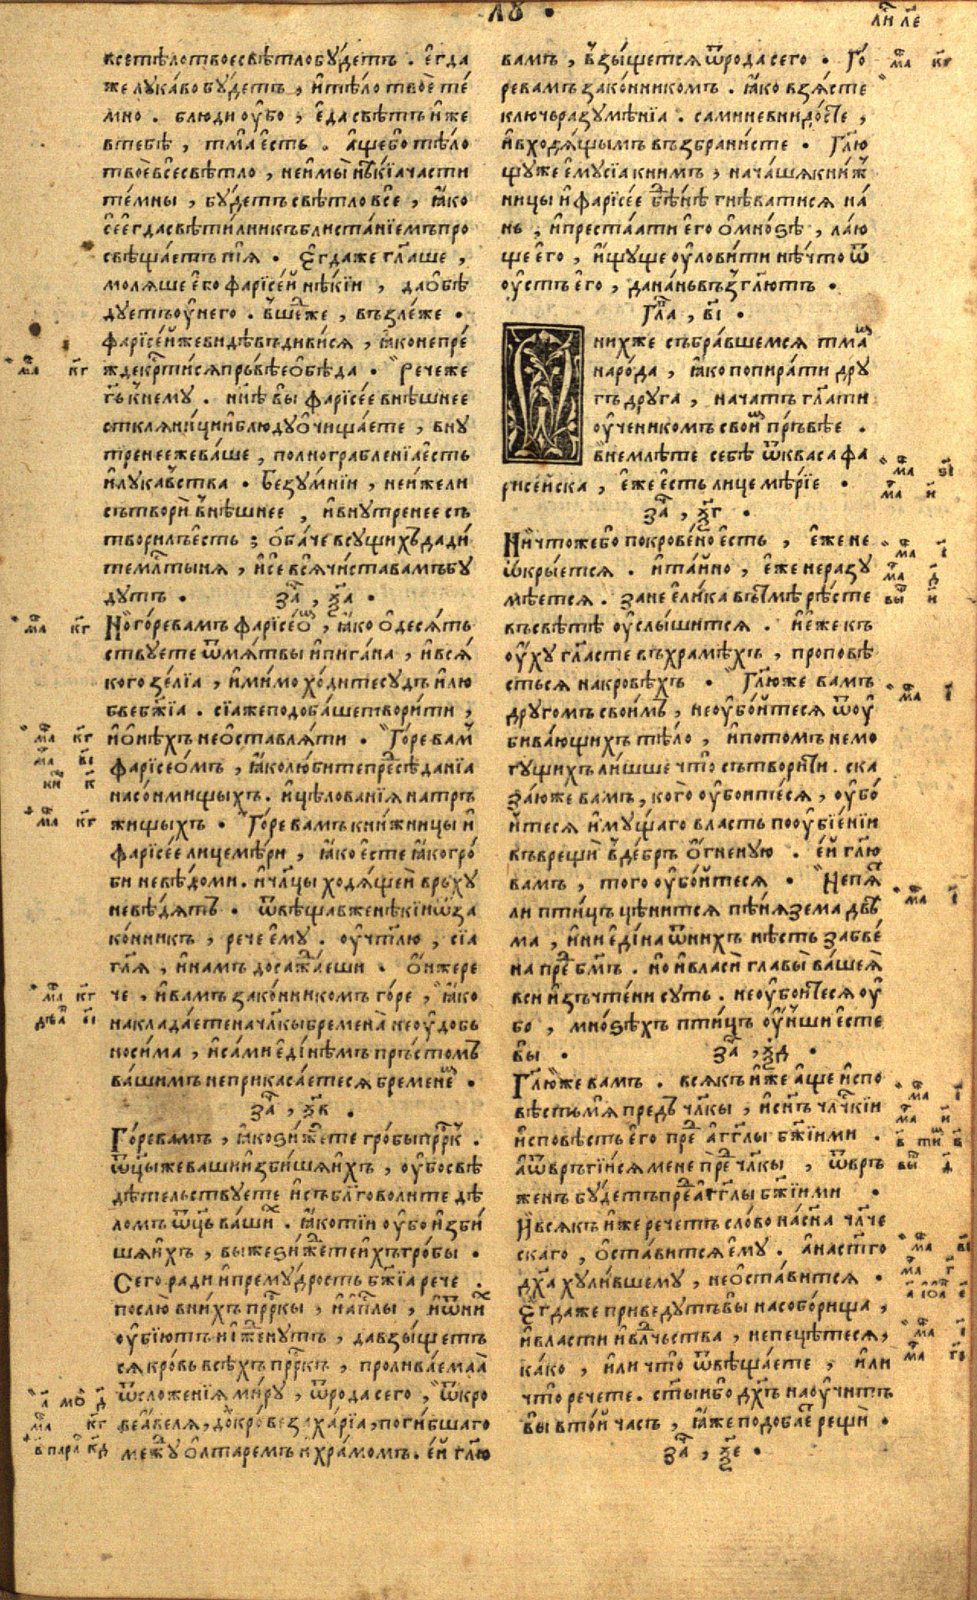 лꙋ •
все тѣло твое свѣтло бꙋ́детъ . є҆гда
же лꙋка́во бꙋдетъ , и҆ тѣ́ло твоѐ те́
мно . блюди оу҆́бо , є҆да свѣтъ и҆же
в тебѣ̀ , тма є҆сть . а҆ще бо тѣ́ло
твоѐ все свѣтло , не и҆мы́й нѣ́кїѧ ча́сти
те́мны , бꙋ́детъ свѣтло всѐ , ꙗ҆́ко
є҆ же є҆гда свѣти́лникъ блиста́нїемъ про
свѣща́етъ тѧ̀ . Є҆гда же гл҃аше ,
молѧ́ше є҆го фарїсе́й нѣ́кїи , да ѻ҆бѣ́
дꙋетъ оу҆ него . вше́д же , възле́же .
фарїсе́й же видѣ́въ диви́сѧ , ꙗ҆́ко не пре́
жде крⷭ҇тисѧ пръ́вѣе ѻ҆бѣ́да . Рече же
гь҃ к нему . нн҃ѣ вы̀ фарїсе́е внѣ́шнее
сткля́ници и҆ блюдꙋ ѻ҆чища́ете , внꙋ́
тренее же ва́ше , полно грабленїѧ є҆сть
и҆ лꙋка́вства . Безꙋ́мнїи , не и҆́же ли
сътворѝ внѣ́шнее , и҆ внꙋ́тренее съ
твори́лъ є҆сть ; ѻ҆ба́че всꙋщихъ дади́
те млⷭ҇тыня , и҆ се всѧ̀ чи́ста вамъ бꙋ́
дꙋтъ . за҃ , ѯ҃а .
Но го́ре вамъ фарїсе́ѡмъ , ꙗ҆́ко ѻ҆десѧ́ть
ствꙋете ѿ мѧ́твы и҆ пи́гана , и҆ всѧ́
кого зе́лїа , и҆ мимо хо́дите сꙋдъ и҆ лю
бве бж҃їа . сїа же подоба́ше твори́ти ,
и҆ ѻ҆нѣ́хъ не ѻ҆ставлѧ́ти . Го́ре вам
фарїсе́ѻмъ , ꙗ҆́ко лю́бите пред сѣда́нїа
на со́нмищыхъ . и҆ цѣлова́нїѧ на тръ́
жищыхъ . Го́ре вамъ кни́жницы и҆
фарїсе́е лицемѣ́ри , ꙗ҆́ко є҆сте ꙗ҆́ко гро́
би невѣ́доми . и҆ чл҃цы ходѧ́щеи врьхꙋ
не вѣ́дѧтъ . ѿвѣща́в же нѣ́кїи ѿ за
ко́нникъ , рече є҆мꙋ . оу҆чт҃лю , сїа
гл҃ѧ , и҆ намъ досажда́еши . Ѻ҆н же ре
че , и҆ вамъ зако́нникомъ го́ре , ꙗ҆́ко
наклада́ете на чл҃кы бремена̀ не оу҆до́бь
носи́ма , и҆ са́ми є҆ди́нѣмъ пръ́стомъ
ва́шимъ не прикаса́етесѧ бремене́м .
за҃ , ѯ҃в .
Го́ре вамъ , ꙗ҆́ко зи́ждете гро́бы прⷪ҇ркъ .
ѿцы́ же ваши и҆зби́шѧ и҆́хъ , оу҆́бо свѣ
дѣ́тельствꙋете и҆ събл҃говоли́те дѣ́
ломъ ѿць ва́шихъ . ꙗ҆́ко тїи оу҆́бо и҆зби́
шѧ и҆́хъ , вы же зи́ждете и҆́хъ гро́бы .
Сего ради и҆ премꙋ́дрость бж҃їа рече .
послю̀ в ни́хъ прⷪ҇ркы , и҆ а҆пⷭ҇лы , и҆ ѿ ни́х
оу҆бїю́тъ и҆ и҆жденꙋ́тъ , да взы́щетъ
сѧ кро́вь всѣ́хъ прⷪ҇ркъ , пролива́емаа
ѿ сложе́нїѧ ми́рꙋ , ѿ рода сего , ѿ кро
ве а҆́велѧ , до кро́ве заха́рїа , поги́бшаго
междꙋ ѻ҆лтаре́мъ и҆ хра́момъ . е҆́й гл҃ю
вамъ , взы́щетсѧ ѿ рода сего . Го́
ре вамъ зако́нникомъ . ꙗ҆́ко взѧ́сте
ключь разꙋмѣ́нїа . сами не внидо́сте ,
и҆ входѧ́щымъ възбрани́сте . Гл҃ю
щꙋ же є҆мꙋ сїа к нимъ , нача́шѧ кни́ж
ницы и҆ фарїсе́е бѣднѣ̀ гнѣ́ватисѧ на́
нь , и҆ преста́ати є҆го ѻ҆ мно́ѕѣ , ла́ю
ще є҆го , и҆́щꙋще оу҆лови́ти нѣ́что ѿ
оу҆́стъ є҆го , да на́нь възгл҃ютъ .
Гл҃а , в҃і .
И ни́хже събра́вшемсѧ тма́м
наро́да , ꙗ҆́ко попира́ти дрꙋ
гъ дрꙋга , нача́тъ гл҃ати
оу҆ченикомъ свои́мъ пръ́вѣе .
внемлѣ́те себѣ̀ ѿ кваса фа
рисе́йска , є҆́же є҆сть лицемѣ́рїе .
за҃ , ѯ҃г .
Ничто́же бо покрове́но є҆сть , є҆же не
ѿкры́етсѧ . и҆ та́йно , є҆же не разꙋ
мѣ́етсѧ . зане є҆ли́ка въ тмѣ̀ рѣ́сте
въ свѣ́тѣ оу҆слы́шитсѧ . и҆ є҆же къ
оу҆́хꙋ гл҃асте въ хра́мѣхъ , проповѣ́
стьсѧ на кровѣхъ . Гл҃ю же вамъ
дрꙋгомъ свои́мъ , не оу҆бо́йтесѧ ѿ оу҆
бива́ющихъ тѣ́ло , и҆ потомъ не мо
гꙋщихъ ли́шше что̀ сътвори́ти . ска
за́ю же ва́мъ , кого̀ оу҆бои́тесѧ , оу҆бо́
йтесѧ и҆мꙋ́щаго власть по оу҆бїе́нїи
въврещѝ в дебръ ѻ҆́гненꙋю . є҆́й гл҃ю
вамъ , того оу҆бо́йтесѧ . Не пѧ́т
ли пти́цъ цѣни́тсѧ пѣ́нѧзема двѣ
ма , и҆ ни є҆ди́на ѿ нихъ нѣ́сть забве́
на пред бг҃мъ . но и҆ вла́си главы̀ ва́шеѧ
вси и҆зъчте́ни сꙋть . не оу҆бо́йтесѧ оу҆́
бо , мно́ѕѣхъ пти́цъ оу҆́нши є҆сте
вы . за҃ , ѯ҃д .
Гл҃ю же вамъ . всѧ́къ и҆́же а҆́ще и҆спо
вѣ́сть мѧ̀ предъ чл҃кы , и҆ сн҃ъ чл҃чкїи
и҆сповѣ́сть є҆го пред а҆гг҃лы бж҃їими .
а҆ ѿврьгі́йсѧ мене пред чл҃кы , ѿвръ
женъ бꙋ́детъ пред а҆гг҃лы бж҃їими .
И҆ всѧ́къ и҆же рече́тъ сло́во на сн҃а чл҃че
скаго , ѻ҆ста́витсѧ є҆мꙋ . а҆ на ст҃го
дх҃а хꙋли́вшемꙋ , не ѻ҆ста́витсѧ .
Є҆гда же приведꙋ́тъ вы на собо́рища ,
и҆ вла́сти и҆ вл҃дчьства , не пецѣ́тесѧ ,
ка́ко , и҆ли что̀ ѿвѣща́ете , и҆ли
что̀ рече́те . ст҃ы́и бо дх҃ъ наоу҆чи́тъ
вы̀ в то́й часъ , ꙗ҆́же подоба́ет рещѝ .
за҃ , ѯ҃е .